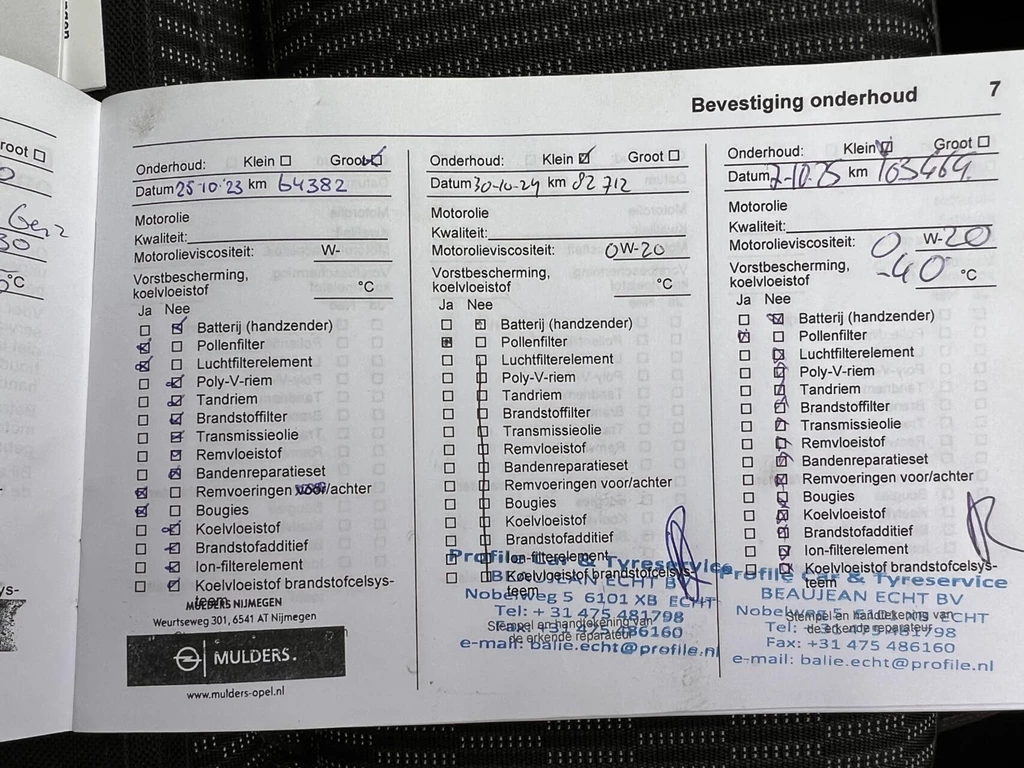 Bevestiging onderhoud 7
root □
Gen 2
30
°C
ys-
Onderhoud: Klein □ Groot ☑
Datum 25-10-'23 km 64382
Motorolie
Kwaliteit:
Motorolieviscositeit: W-
Vorstbescherming,
koelvloeistof °C
Ja Nee
□ ☑ Batterij (handzender)
☑ □ Pollenfilter
☑ □ Luchtfilterelement
□ ☑ Poly-V-riem
□ ☑ Tandriem
□ ☑ Brandstoffilter
□ ☑ Transmissieolie
□ ☑ Remvloeistof
□ ☑ Bandenreparatieset
☑ □ Remvoeringen voor/achter
☑ □ Bougies
□ ☑ Koelvloeistof
□ ☑ Brandstofadditief
□ ☑ Ion-filterelement
□ ☑ Koelvloeistof brandstofcelsys-
teem
MULDERS NIJMEGEN
Weurtseweg 301, 6541 AT Nijmegen
MULDERS.
www.mulders-opel.nl
Onderhoud: Klein ☑ Groot □
Datum 30-10-24 km 82712
Motorolie
Kwaliteit:
Motorolieviscositeit: 0W-20
Vorstbescherming,
koelvloeistof °C
Ja Nee
□ ☒ Batterij (handzender)
☒ □ Pollenfilter
□ □ Luchtfilterelement
□ □ Poly-V-riem
□ □ Tandriem
□ □ Brandstoffilter
□ □ Transmissieolie
□ □ Remvloeistof
□ □ Bandenreparatieset
□ □ Remvoeringen voor/achter
□ □ Bougies
□ □ Koelvloeistof
□ □ Brandstofadditief
□ □ Ion-filterelement
□ □ Koelvloeistof brandstofcelsys-
teem
Stempel en handtekening van
de erkende reparateur
Profile Car & Tyreservice
BEAUJEAN ECHT BV
Nobelweg 5 6101 XB ECHT
Tel: +31 475 481798
Fax: +31 475 486160
e-mail: balie.echt@profile.nl
Onderhoud: Klein ☑ Groot □
Datum 7-10-25 km 103464
Motorolie
Kwaliteit:
Motorolieviscositeit: 0 W-20
Vorstbescherming,
koelvloeistof -40 °C
Ja Nee
□ ☒ Batterij (handzender)
☑ □ Pollenfilter
□ ☑ Luchtfilterelement
□ ☑ Poly-V-riem
□ ☑ Tandriem
□ ☑ Brandstoffilter
□ ☑ Transmissieolie
□ ☑ Remvloeistof
□ ☑ Bandenreparatieset
□ ☑ Remvoeringen voor/achter
□ ☑ Bougies
□ ☑ Koelvloeistof
□ ☑ Brandstofadditief
□ ☑ Ion-filterelement
□ ☑ Koelvloeistof brandstofcelsys-
teem
Stempel en handtekening van
de erkende reparateur
Profile Car & Tyreservice
BEAUJEAN ECHT BV
Nobelweg 5 6101 XB ECHT
Tel: +31 475 481798
Fax: +31 475 486160
e-mail: balie.echt@profile.nl